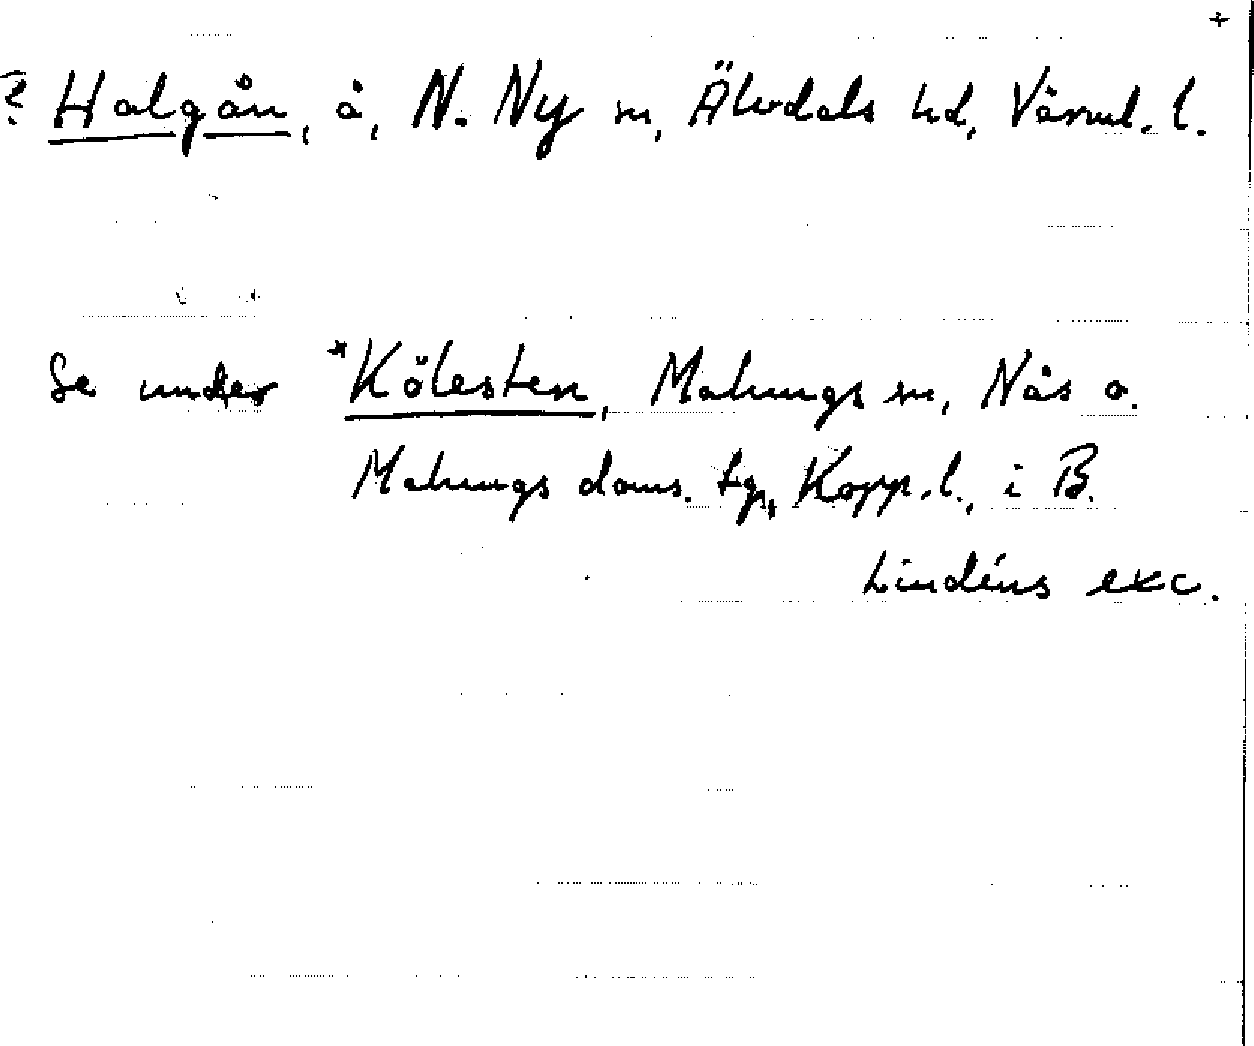 +
? Halgån, å, N. Ny sn, Älvdals hd, Värml. l.
Se under *Kölesten, Malungs sn, Nås o.
Malungs doms. tg, Kopp. l., i B.
Lindéns exc.